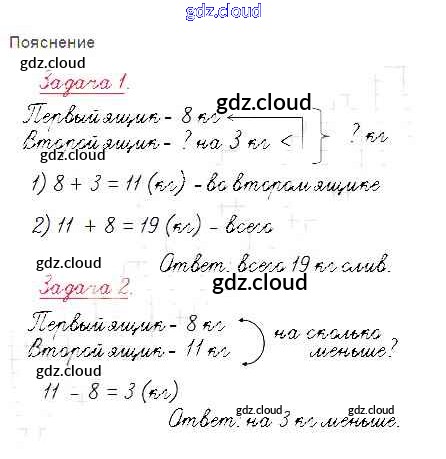 gdz.cloud
Пояснение
gdz.cloud
Задача 1.
gdz.cloud
Первый ящик - 8 кг
Второй ящик - ? на 3 кг < ? кг
gdz.cloud
1) 8 + 3 = 11 (кг) - во втором ящике
2) 11 + 8 = 19 (кг) - всего
gdz.cloud
Ответ: всего 19 кг слив.
Задача 2.
gdz.cloud
Первый ящик - 8 кг
Второй ящик - 11 кг
на сколько
меньше?
gdz.cloud
11 - 8 = 3 (кг)
gdz.cloud gdz.cloud
Ответ: на 3 кг меньше.